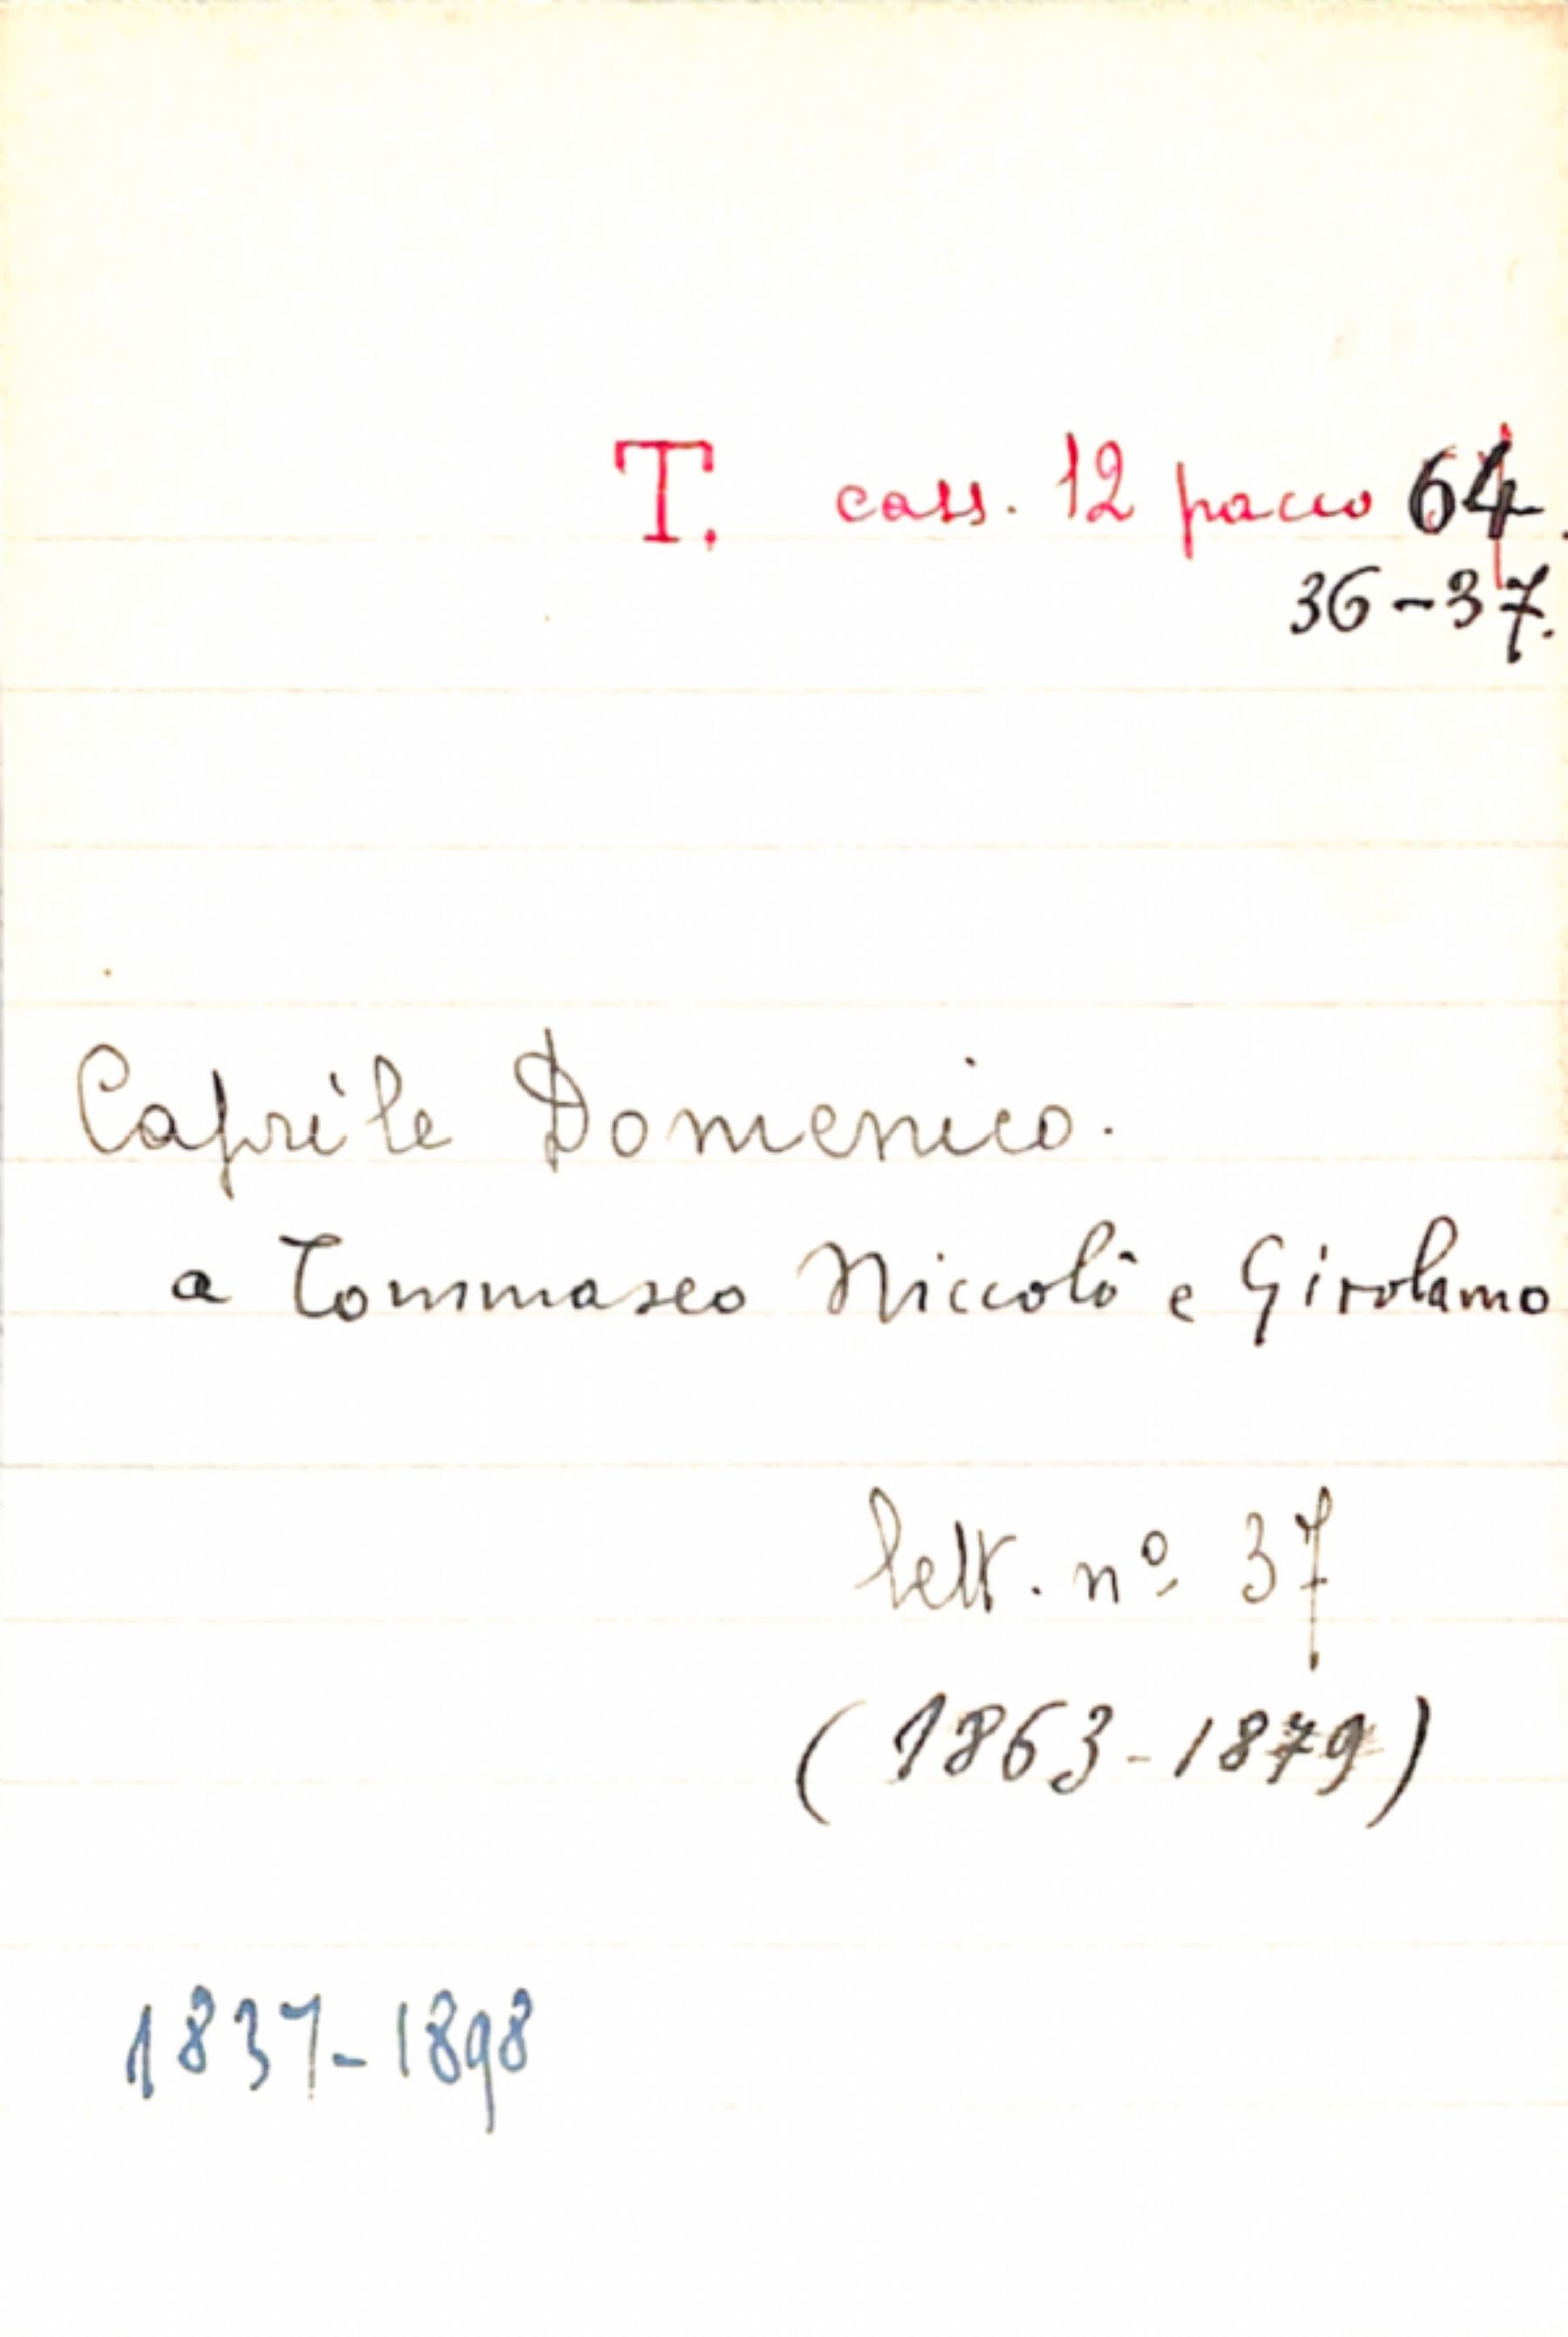 T. cass. 12 pacco 64.
36-37.
Caprile Domenico.
a Tommaseo Niccolò e Girolamo
lett. nº 37
(1863-1879)
1837-1898